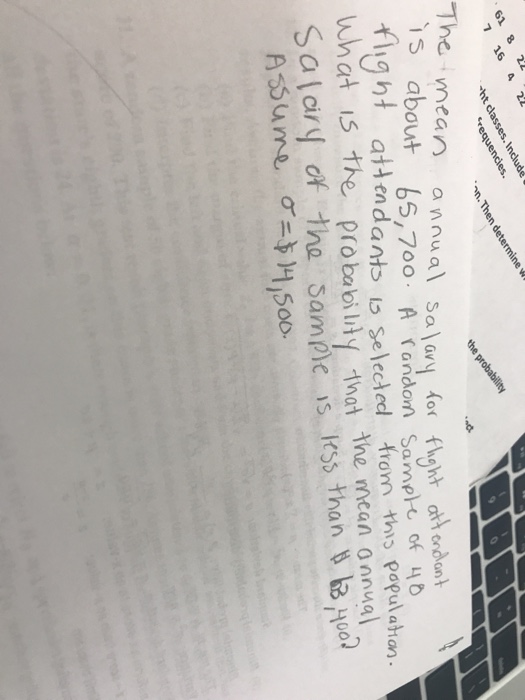 61 8 22
7 16 4 22
ht classes. Include
frequencies.
on. Then determine w
the probability
The mean annual salary for flight attendant
is about 65,700. A random sample of 48
flight attendants is selected from this population.
What is the probability that the mean annual
Salary of the sample is less than $ 63,400?
Assume σ = $14,500.